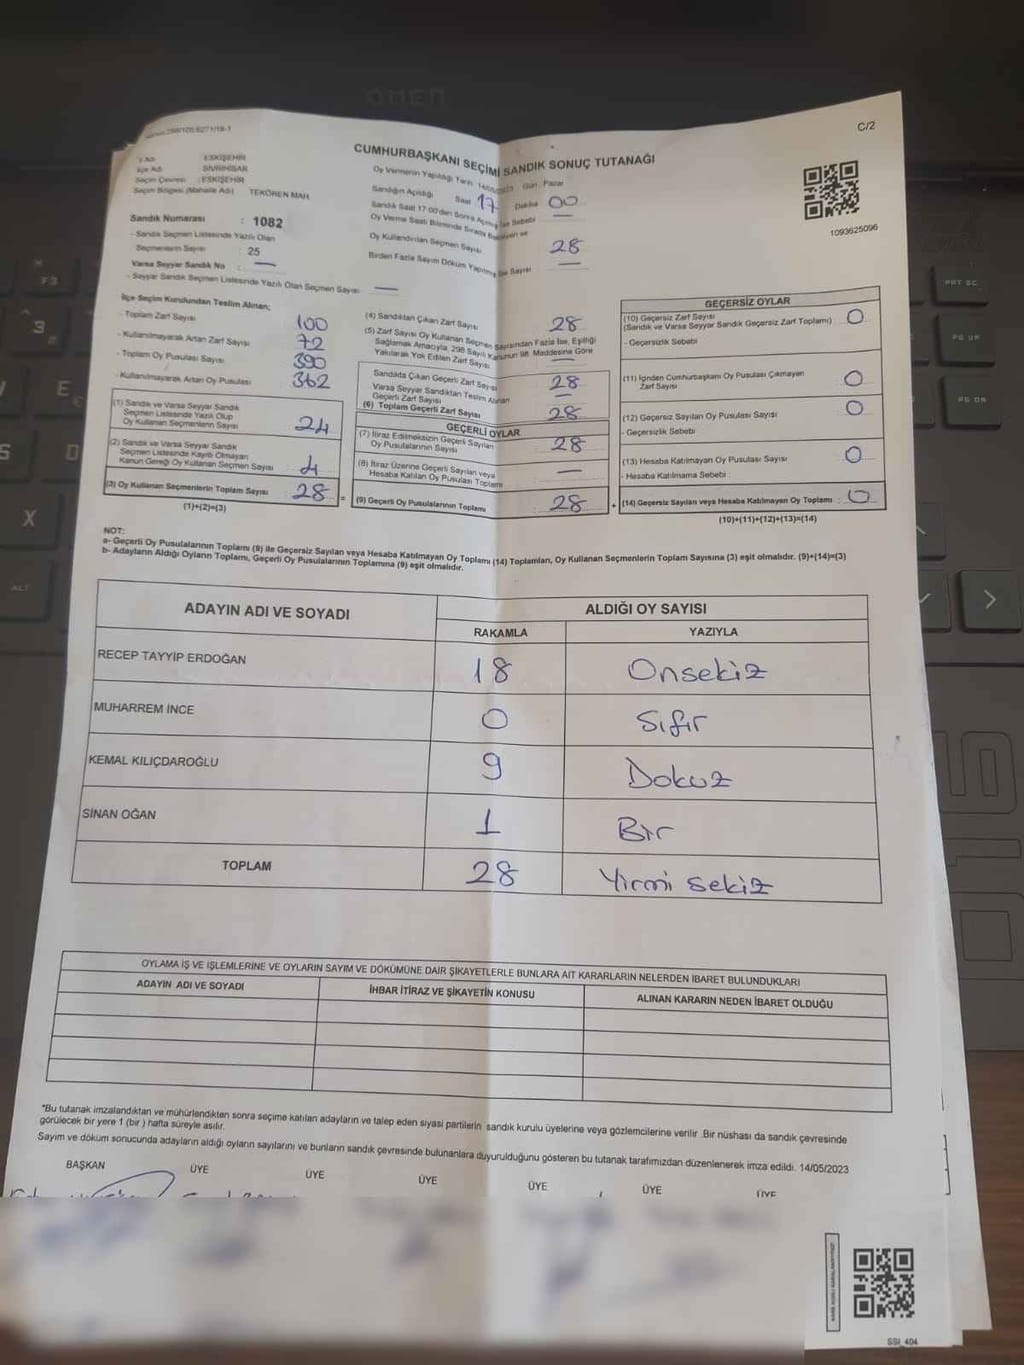 OMEN
C/2
CUMHURBAŞKANI SEÇİMİ SANDIK SONUÇ TUTANAĞI
ESKİŞEHİR
SİVRİHİSAR
Seçim Çevresi : ESKİŞEHİR
Seçim Bölgesi (Mahalle Adı) TEKÖREN MAH.
Sandık Numarası : 1082
- Sandık Seçmen Listesinde Yazılı Olan
Seçmenlerin Sayısı : 25
Varsa Seyyar Sandık No : —
- Seyyar Sandık Seçmen Listesinde Yazılı Olan Seçmen Sayısı : —
Oy Vermenin Yapıldığı Tarih 14/05/2023 Gün : Pazar
Sandığın Açıldığı Saat 17 Dakika 00
Oy Kullandırılan Seçmen Sayısı 28
1093625096
İlçe Seçim Kurulundan Teslim Alınan;
- Toplam Zarf Sayısı 100
- Kullanılmayarak Artan Zarf Sayısı 72
- Toplam Oy Pusulası Sayısı 390
- Kullanılmayarak Artan Oy Pusulası 362
(1) Sandık ve Varsa Seyyar Sandık
Seçmen Listesinde Yazılı Olup
Oy Kullanan Seçmenlerin Sayısı 24
(2) Sandık ve Varsa Seyyar Sandık
Seçmen Listesinde Kayıtlı Olmayan
Kanun Gereği Oy Kullanan Seçmen Sayısı 4
(3) Oy Kullanan Seçmenlerin Toplam Sayısı 28 =
(1)+(2)=(3)
(4) Sandıktan Çıkan Zarf Sayısı 28
(5) Zarf Sayısı Oy Kullanan Seçmen Sayısından Fazla İse, Eşitliği
Sağlamak Amacıyla, 298 Sayılı Kanunun 98. Maddesine Göre
Yakılarak Yok Edilen Zarf Sayısı —
Sandıkta Çıkan Geçerli Zarf Sayısı 28
Varsa Seyyar Sandıktan Teslim Alınan
Geçerli Zarf Sayısı —
(6) Toplam Geçerli Zarf Sayısı 28
GEÇERLİ OYLAR
(7) İtiraz Edilmeksizin Geçerli Sayılan
Oy Pusulalarının Sayısı 28
(8) İtiraz Üzerine Geçerli Sayılan veya
Hesaba Katılan Oy Pusulası Toplamı —
(9) Geçerli Oy Pusulalarının Toplamı 28 +
GEÇERSİZ OYLAR
(10) Geçersiz Zarf Sayısı
(Sandık ve Varsa Seyyar Sandık Geçersiz Zarf Toplamı) : 0
- Geçersizlik Sebebi
(11) İçinden Cumhurbaşkanı Oy Pusulası Çıkmayan
Zarf Sayısı : 0
(12) Geçersiz Sayılan Oy Pusulası Sayısı : 0
- Geçersizlik Sebebi
(13) Hesaba Katılmayan Oy Pusulası Sayısı : 0
- Hesaba Katılmama Sebebi :
(14) Geçersiz Sayılan veya Hesaba Katılmayan Oy Toplamı : 0
(10)+(11)+(12)+(13)=(14)
NOT:
a- Geçerli Oy Pusulalarının Toplamı (9) ile Geçersiz Sayılan veya Hesaba Katılmayan Oy Toplamı (14) Toplamları, Oy Kullanan Seçmenlerin Toplam Sayısına (3) eşit olmalıdır. (9)+(14)=(3)
b- Adayların Aldığı Oyların Toplamı, Geçerli Oy Pusulalarının Toplamına (9) eşit olmalıdır.
ADAYIN ADI VE SOYADI ALDIĞI OY SAYISI
RAKAMLA YAZIYLA
RECEP TAYYİP ERDOĞAN 18 Onsekiz
MUHARREM İNCE 0 Sıfır
KEMAL KILIÇDAROĞLU 9 Dokuz
SİNAN OĞAN 1 Bir
TOPLAM 28 Yirmi sekiz
OYLAMA İŞ VE İŞLEMLERİNE VE OYLARIN SAYIM VE DÖKÜMÜNE DAİR ŞİKAYETLERLE BUNLARA AİT KARARLARIN NELERDEN İBARET BULUNDUKLARI
ADAYIN ADI VE SOYADI İHBAR İTİRAZ VE ŞİKAYETİN KONUSU ALINAN KARARIN NEDEN İBARET OLDUĞU
*Bu tutanak imzalandıktan ve mühürlendikten sonra seçime katılan adayların ve talep eden siyasi partilerin sandık kurulu üyelerine veya gözlemcilerine verilir .Bir nüshası da sandık çevresinde
görülecek bir yere 1 (bir ) hafta süreyle asılır.
Sayım ve döküm sonucunda adayların aldığı oyların sayılarını ve bunların sandık çevresinde bulunanlara duyurulduğunu gösteren bu tutanak tarafımızdan düzenlenerek imza edildi. 14/05/2023
BAŞKAN ÜYE ÜYE ÜYE ÜYE ÜYE ÜYE
SSI_404